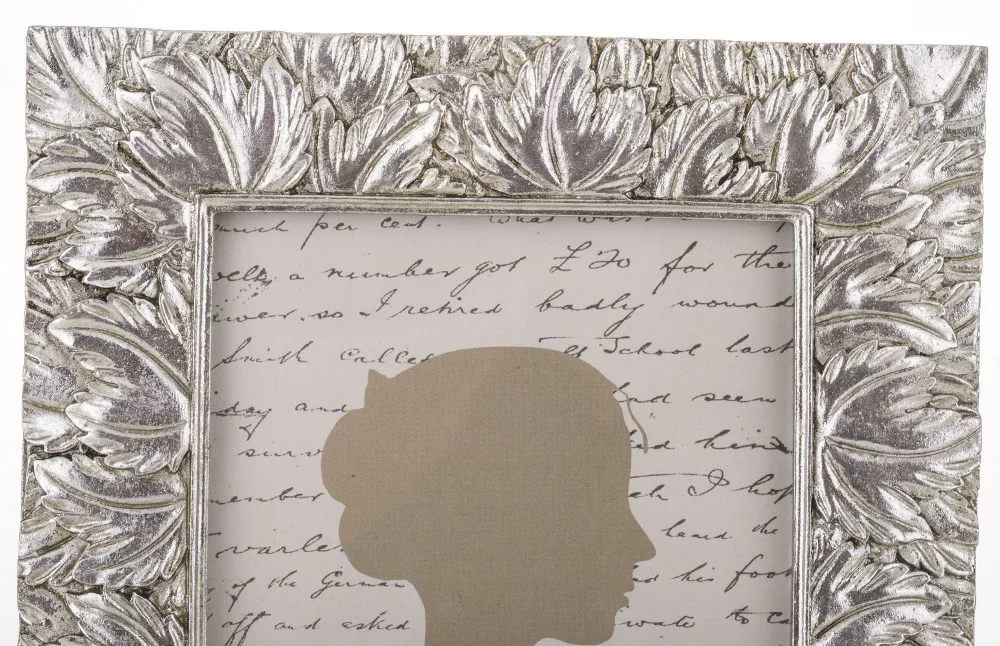 much per cent. what was
a number got £20 for the
so I retired badly wound
Smith called School last
day and had seen
surv him
member I hop
heard the
of the German his foot
off and asked to ca